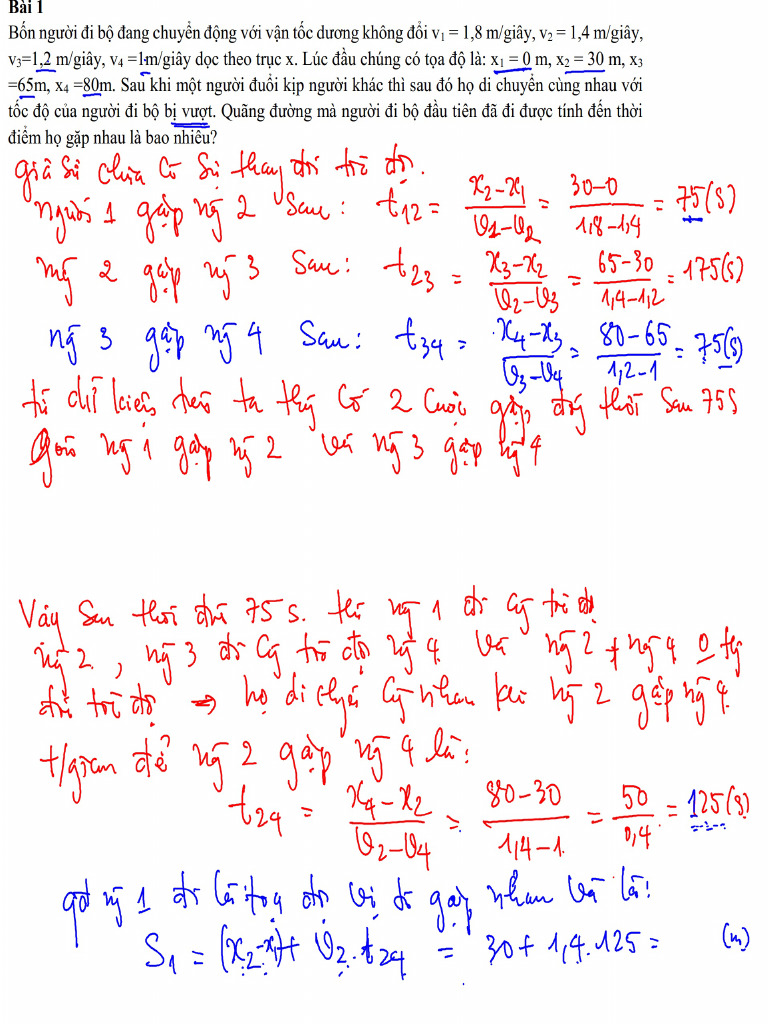 Bài 1
Bốn người đi bộ đang chuyển động với vận tốc dương không đổi v₁ = 1,8 m/giây, v₂ = 1,4 m/giây,
v₃=1,2 m/giây, v₄ =1m/giây dọc theo trục x. Lúc đầu chúng có tọa độ là: x₁ = 0 m, x₂ = 30 m, x₃
=65m, x₄ =80m. Sau khi một người đuổi kịp người khác thì sau đó họ di chuyển cùng nhau với
tốc độ của người đi bộ bị vượt. Quãng đường mà người đi bộ đầu tiên đã đi được tính đến thời
điểm họ gặp nhau là bao nhiêu?
giả sử chưa có sự thay đổi tốc độ.
người 1 gặp ng 2 sau: t₁₂ = (x₂-x₁)/(v₁-v₂) = (30-0)/(1,8-1,4) = 75(s)
ng 2 gặp ng 3 sau: t₂₃ = (x₃-x₂)/(v₂-v₃) = (65-30)/(1,4-1,2) = 175(s)
ng 3 gặp ng 4 sau: t₃₄ = (x₄-x₃)/(v₃-v₄) = (80-65)/(1,2-1) = 75(s)
từ dữ kiện trên ta thấy có 2 cuộc gặp đồng thời sau 75s
gồm ng 1 gặp ng 2 và ng 3 gặp ng 4
Vậy sau thời điểm 75s. thì ng 1 đi cùng tốc độ
ng 2, ng 3 đi cùng tốc độ ng 4. Và ng 2 + ng 4 o thay
đổi tốc độ → họ di chuyển cùng nhau khi ng 2 gặp ng 4.
t/gian để ng 2 gặp ng 4 là:
t₂₄ = (x₄-x₂)/(v₂-v₄) = (80-30)/(1,4-1) = 50/0,4 = 125(s)
qđ ng 1 đi là toạ độ vị trí gặp nhau và là:
S₁ = (x₂-x₁)+ v₂.t₂₄ = 30+1,4.125 = (m)